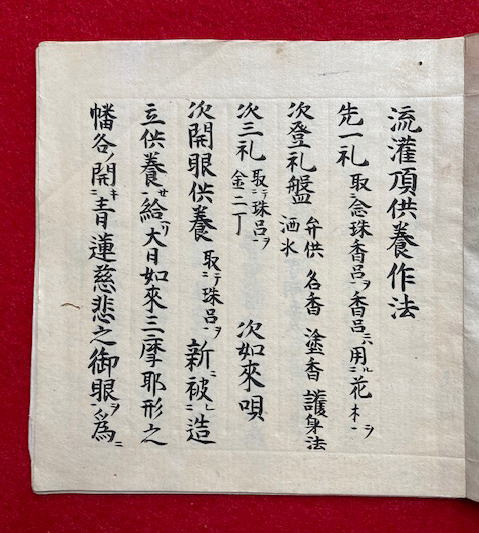 流灌頂供養作法
先一礼 取念珠香呂ヲ香呂ニハ用ル花木ヲ
次登礼盤 弁供 名香 塗香 護身法
洒水
次三礼 取テ珠呂ヲ 次如來唄
金二丁
次開眼供養 取テ珠呂ヲ 新ニ被レ造
立供養セ給リ大日如來三摩耶形之
幡各ノ開キ青蓮慈悲之御眼ヲ為ニ